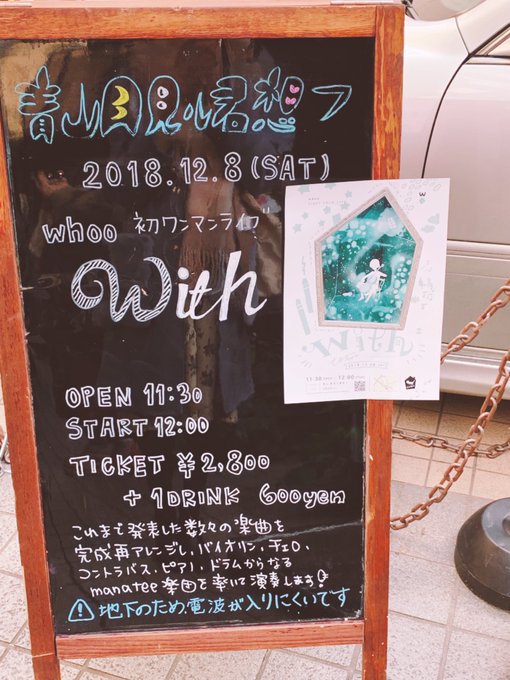 青山月見ル君想フ
2018.12.8(SAT)
whoo 初ワンマンライブ
With
OPEN 11:30
START 12:00
TICKET ¥2,800
+ 1DRINK 600yen
これまで発表した数々の楽曲を
完成再アレンジし、バイオリン、チェロ、
コントラバス、ピアノ、ドラムからなる
manatee楽団を率いて演奏します!
⚠地下のため電波が入りにくいです
With